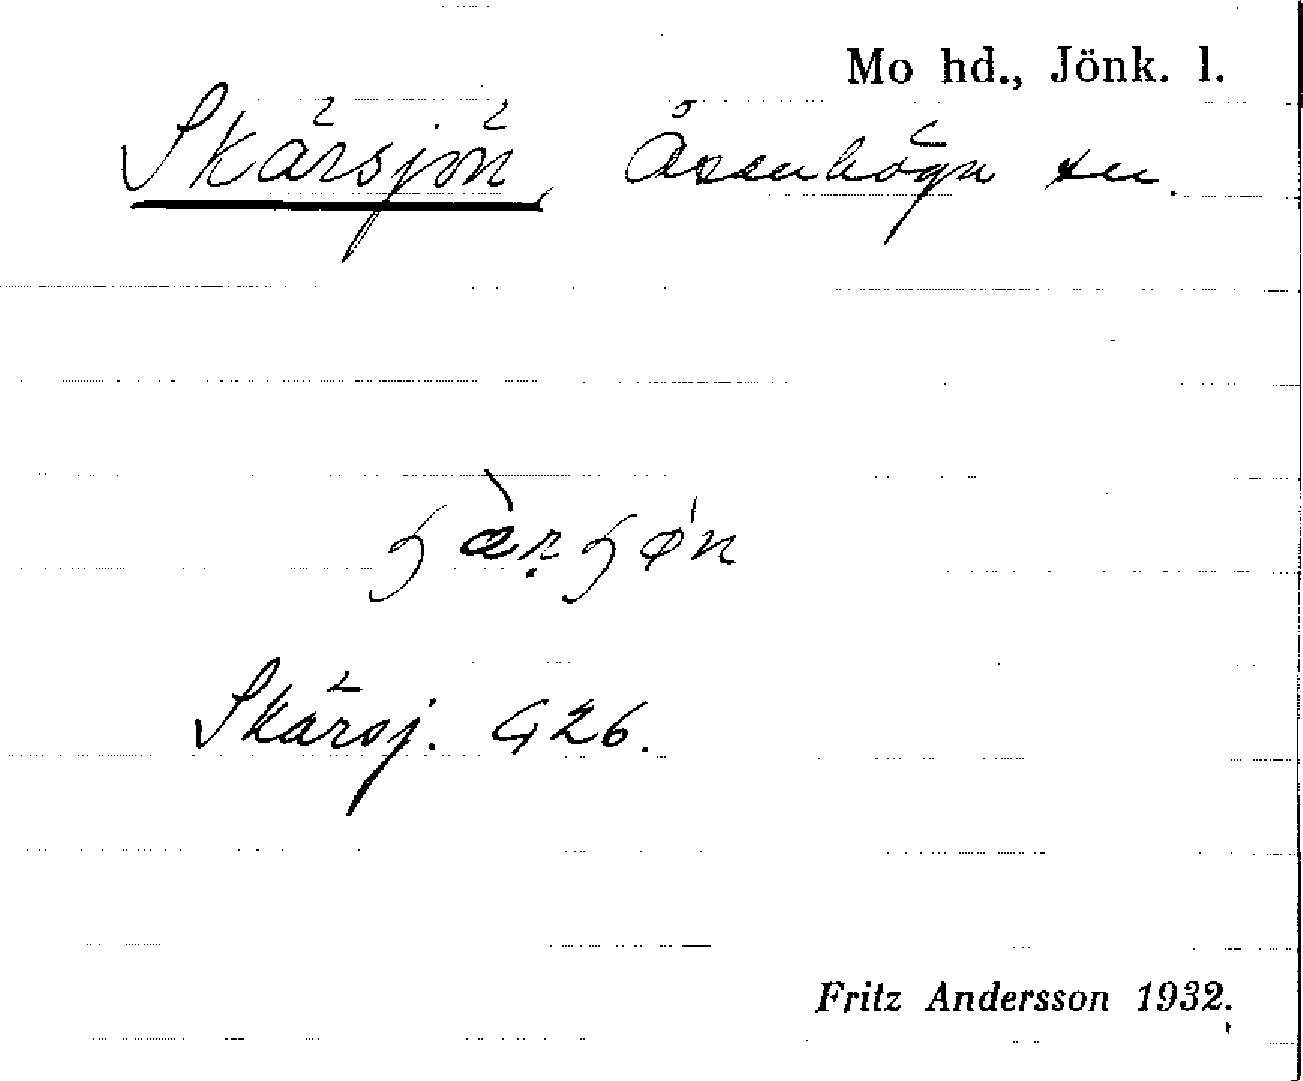 Mo hd., Jönk. l.
Skärsjön, Åsenhöga sn.
Skärsj. G26.
Fritz Andersson 1932.